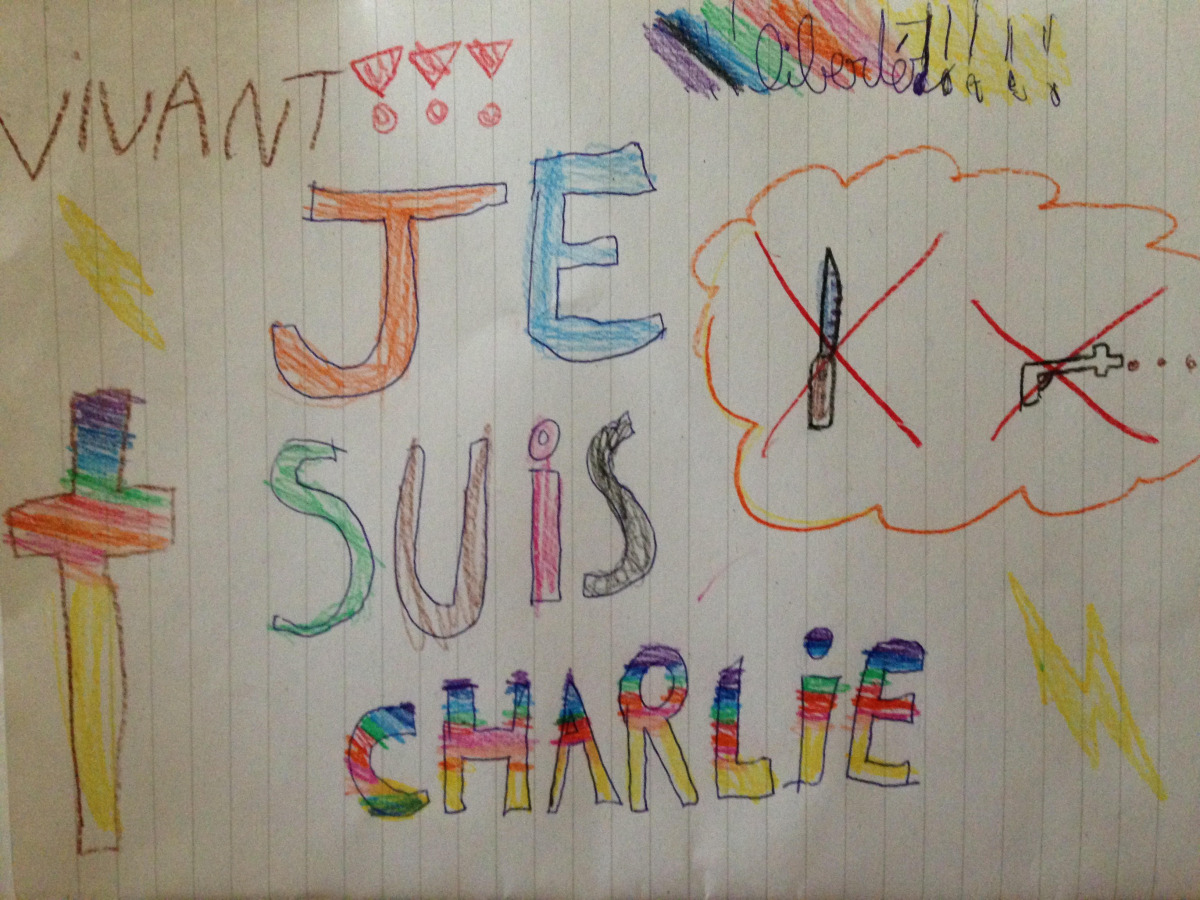 ViVANT !!!
liberté!!!!!!
JE
SUiS
CHARLiE